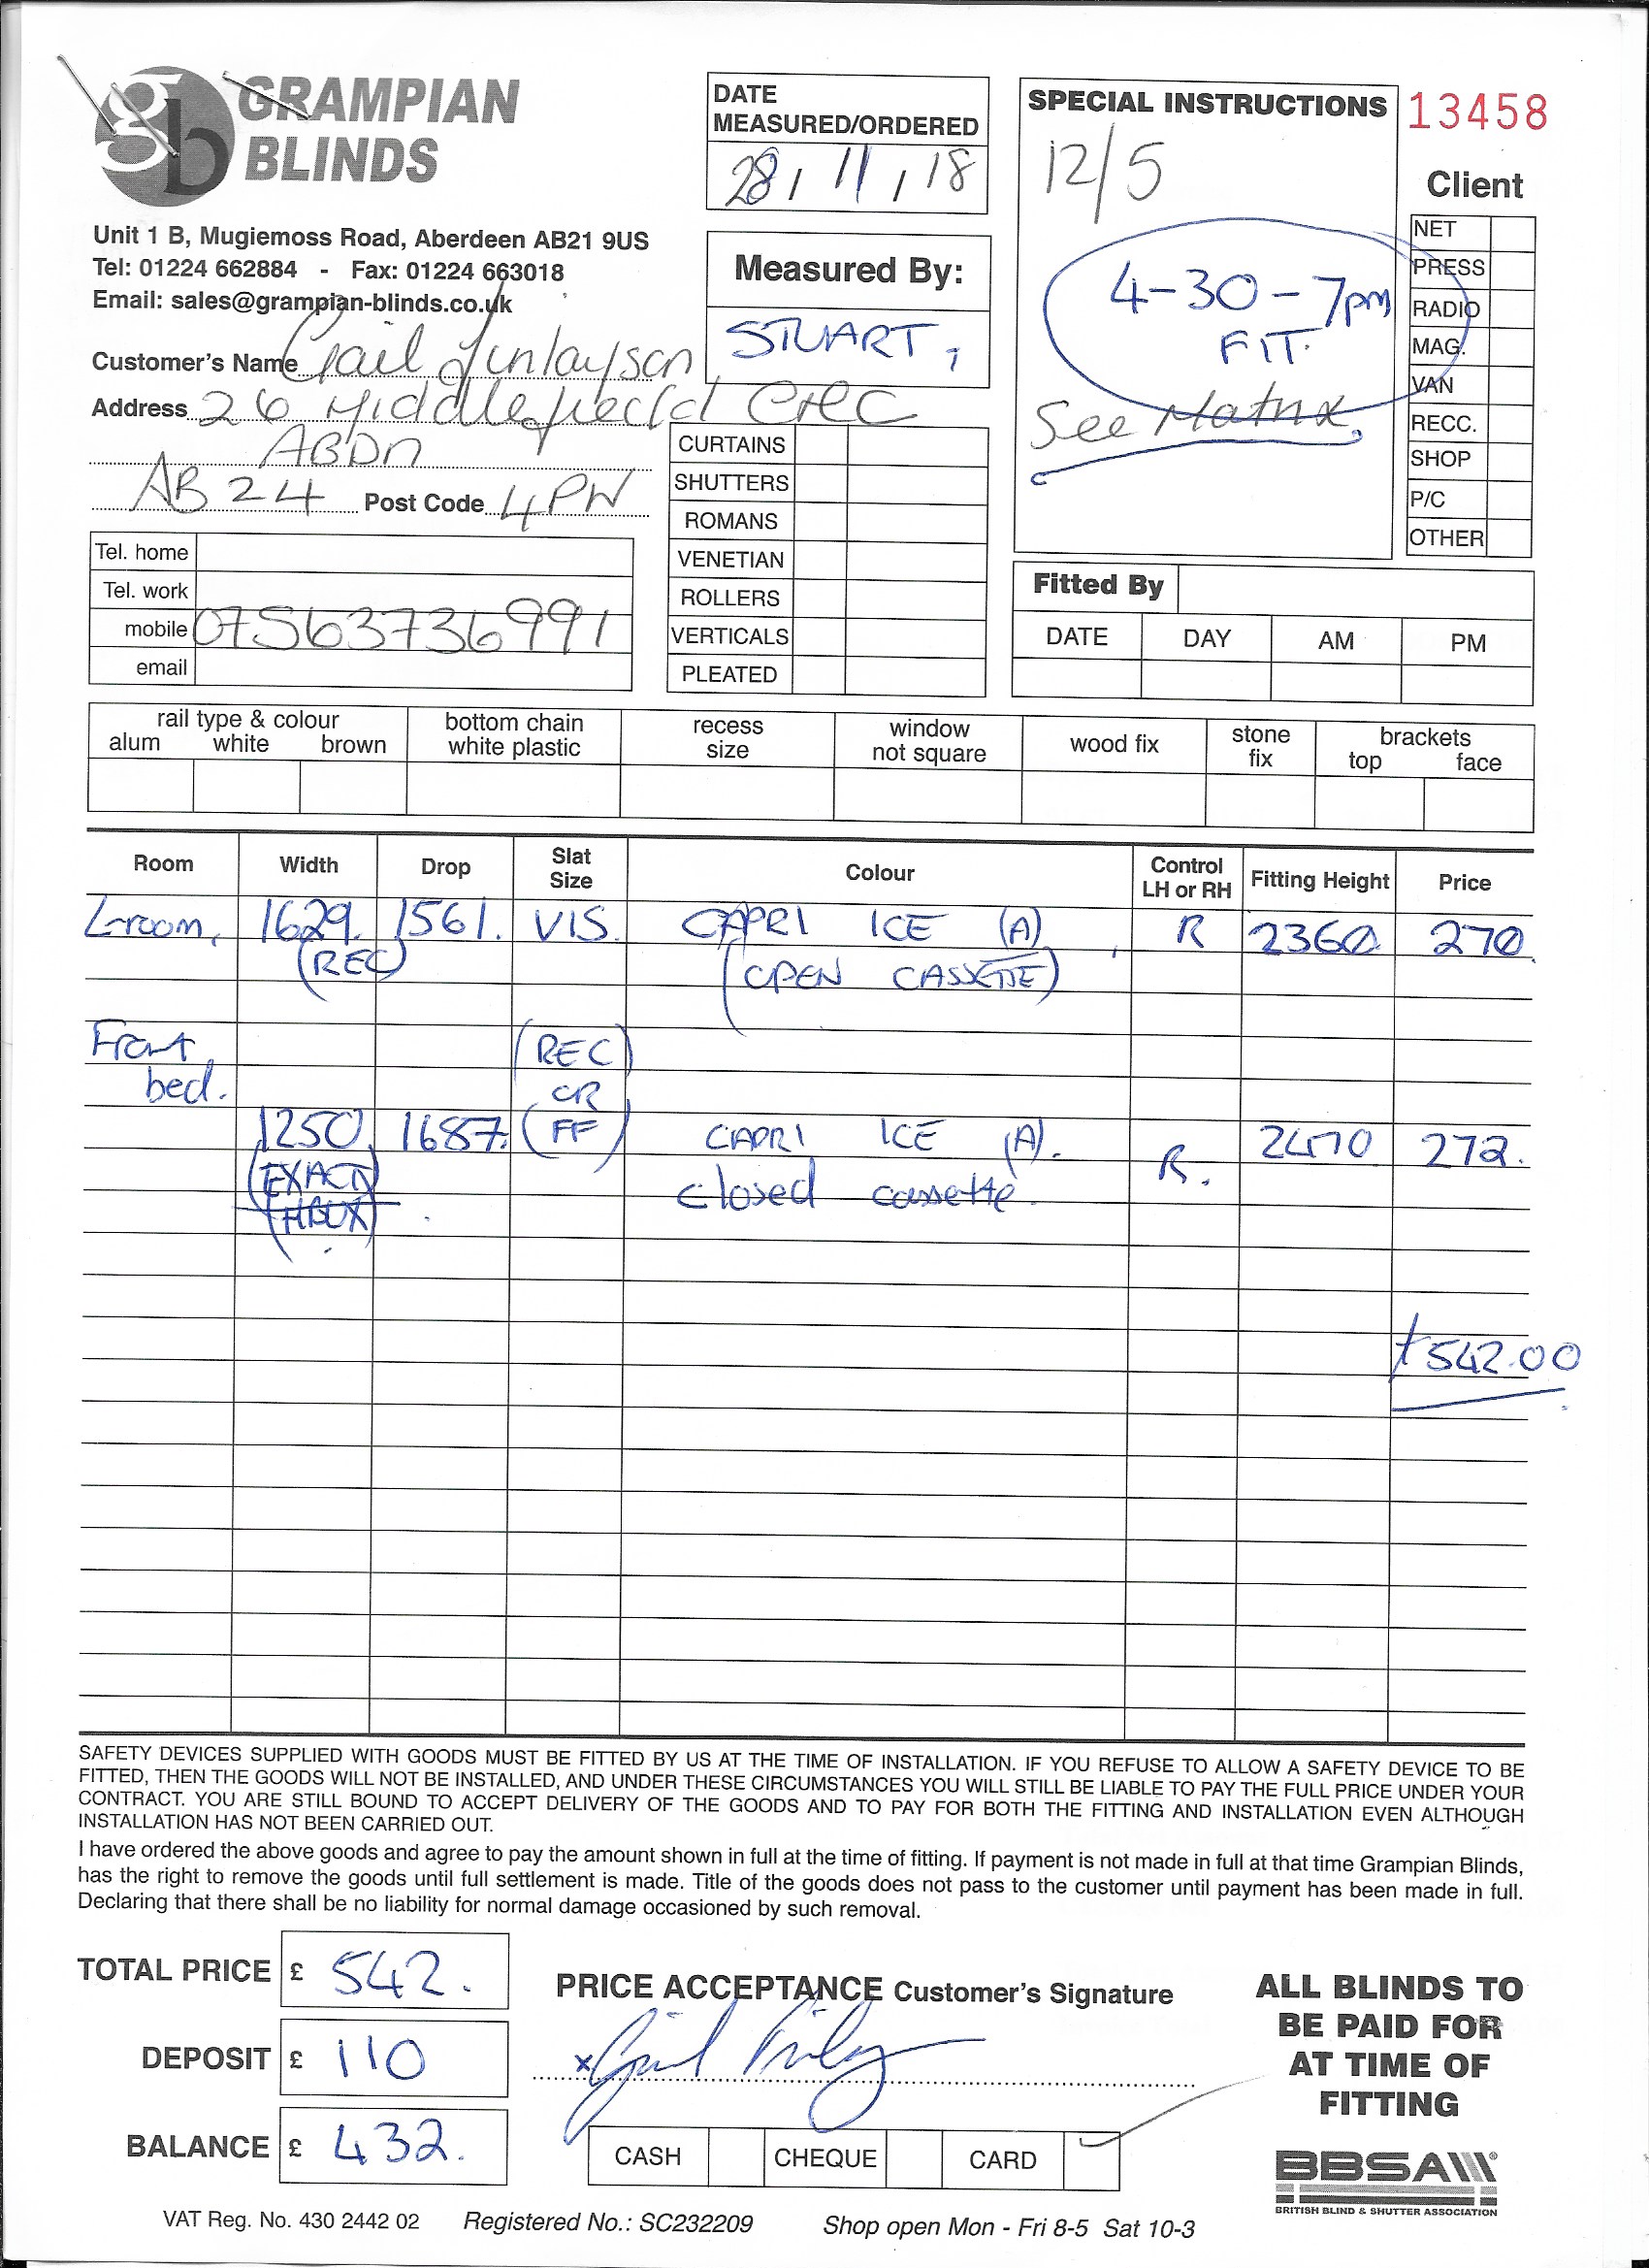 gb GRAMPIAN BLINDS
Unit 1 B, Mugiemoss Road, Aberdeen AB21 9US
Tel: 01224 662884 - Fax: 01224 663018
Email: sales@grampian-blinds.co.uk
Customer's Name Gail Finlayson
Address 26 Middlefield Cres
ABDN
AB24 Post Code 4PW
Tel. home
Tel. work
mobile 07563736991
email
DATE
MEASURED/ORDERED
28 / 11 / 18
Measured By:
STUART
CURTAINS
SHUTTERS
ROMANS
VENETIAN
ROLLERS
VERTICALS
PLEATED
SPECIAL INSTRUCTIONS
12/5
4-30-7pm
FIT.
See Matrix
13458
Client
NET
PRESS
RADIO
MAG.
VAN
RECC.
SHOP
P/C
OTHER
Fitted By
DATE DAY AM PM
rail type & colour
alum white brown
bottom chain
white plastic
recess
size
window
not square
wood fix
stone
fix
brackets
top face
Room Width Drop Slat Size Colour Control LH or RH Fitting Height Price
L-room, 1629. 1561. VIS. CAPRI ICE (A) R 2360 270.
(REC) (OPEN CASSETTE)
Front (REC)
bed. OR
1250 1687. (FF) CAPRI ICE (A). R. 2470 272.
(EXACT) closed cassette.
(HBOX)
£542.00
SAFETY DEVICES SUPPLIED WITH GOODS MUST BE FITTED BY US AT THE TIME OF INSTALLATION. IF YOU REFUSE TO ALLOW A SAFETY DEVICE TO BE
FITTED, THEN THE GOODS WILL NOT BE INSTALLED, AND UNDER THESE CIRCUMSTANCES YOU WILL STILL BE LIABLE TO PAY THE FULL PRICE UNDER YOUR
CONTRACT. YOU ARE STILL BOUND TO ACCEPT DELIVERY OF THE GOODS AND TO PAY FOR BOTH THE FITTING AND INSTALLATION EVEN ALTHOUGH
INSTALLATION HAS NOT BEEN CARRIED OUT.
I have ordered the above goods and agree to pay the amount shown in full at the time of fitting. If payment is not made in full at that time Grampian Blinds,
has the right to remove the goods until full settlement is made. Title of the goods does not pass to the customer until payment has been made in full.
Declaring that there shall be no liability for normal damage occasioned by such removal.
TOTAL PRICE £ 542.
DEPOSIT £ 110
BALANCE £ 432.
PRICE ACCEPTANCE Customer's Signature
x
CASH CHEQUE CARD
ALL BLINDS TO
BE PAID FOR
AT TIME OF
FITTING
BBSA
BRITISH BLIND & SHUTTER ASSOCIATION
VAT Reg. No. 430 2442 02 Registered No.: SC232209 Shop open Mon - Fri 8-5 Sat 10-3